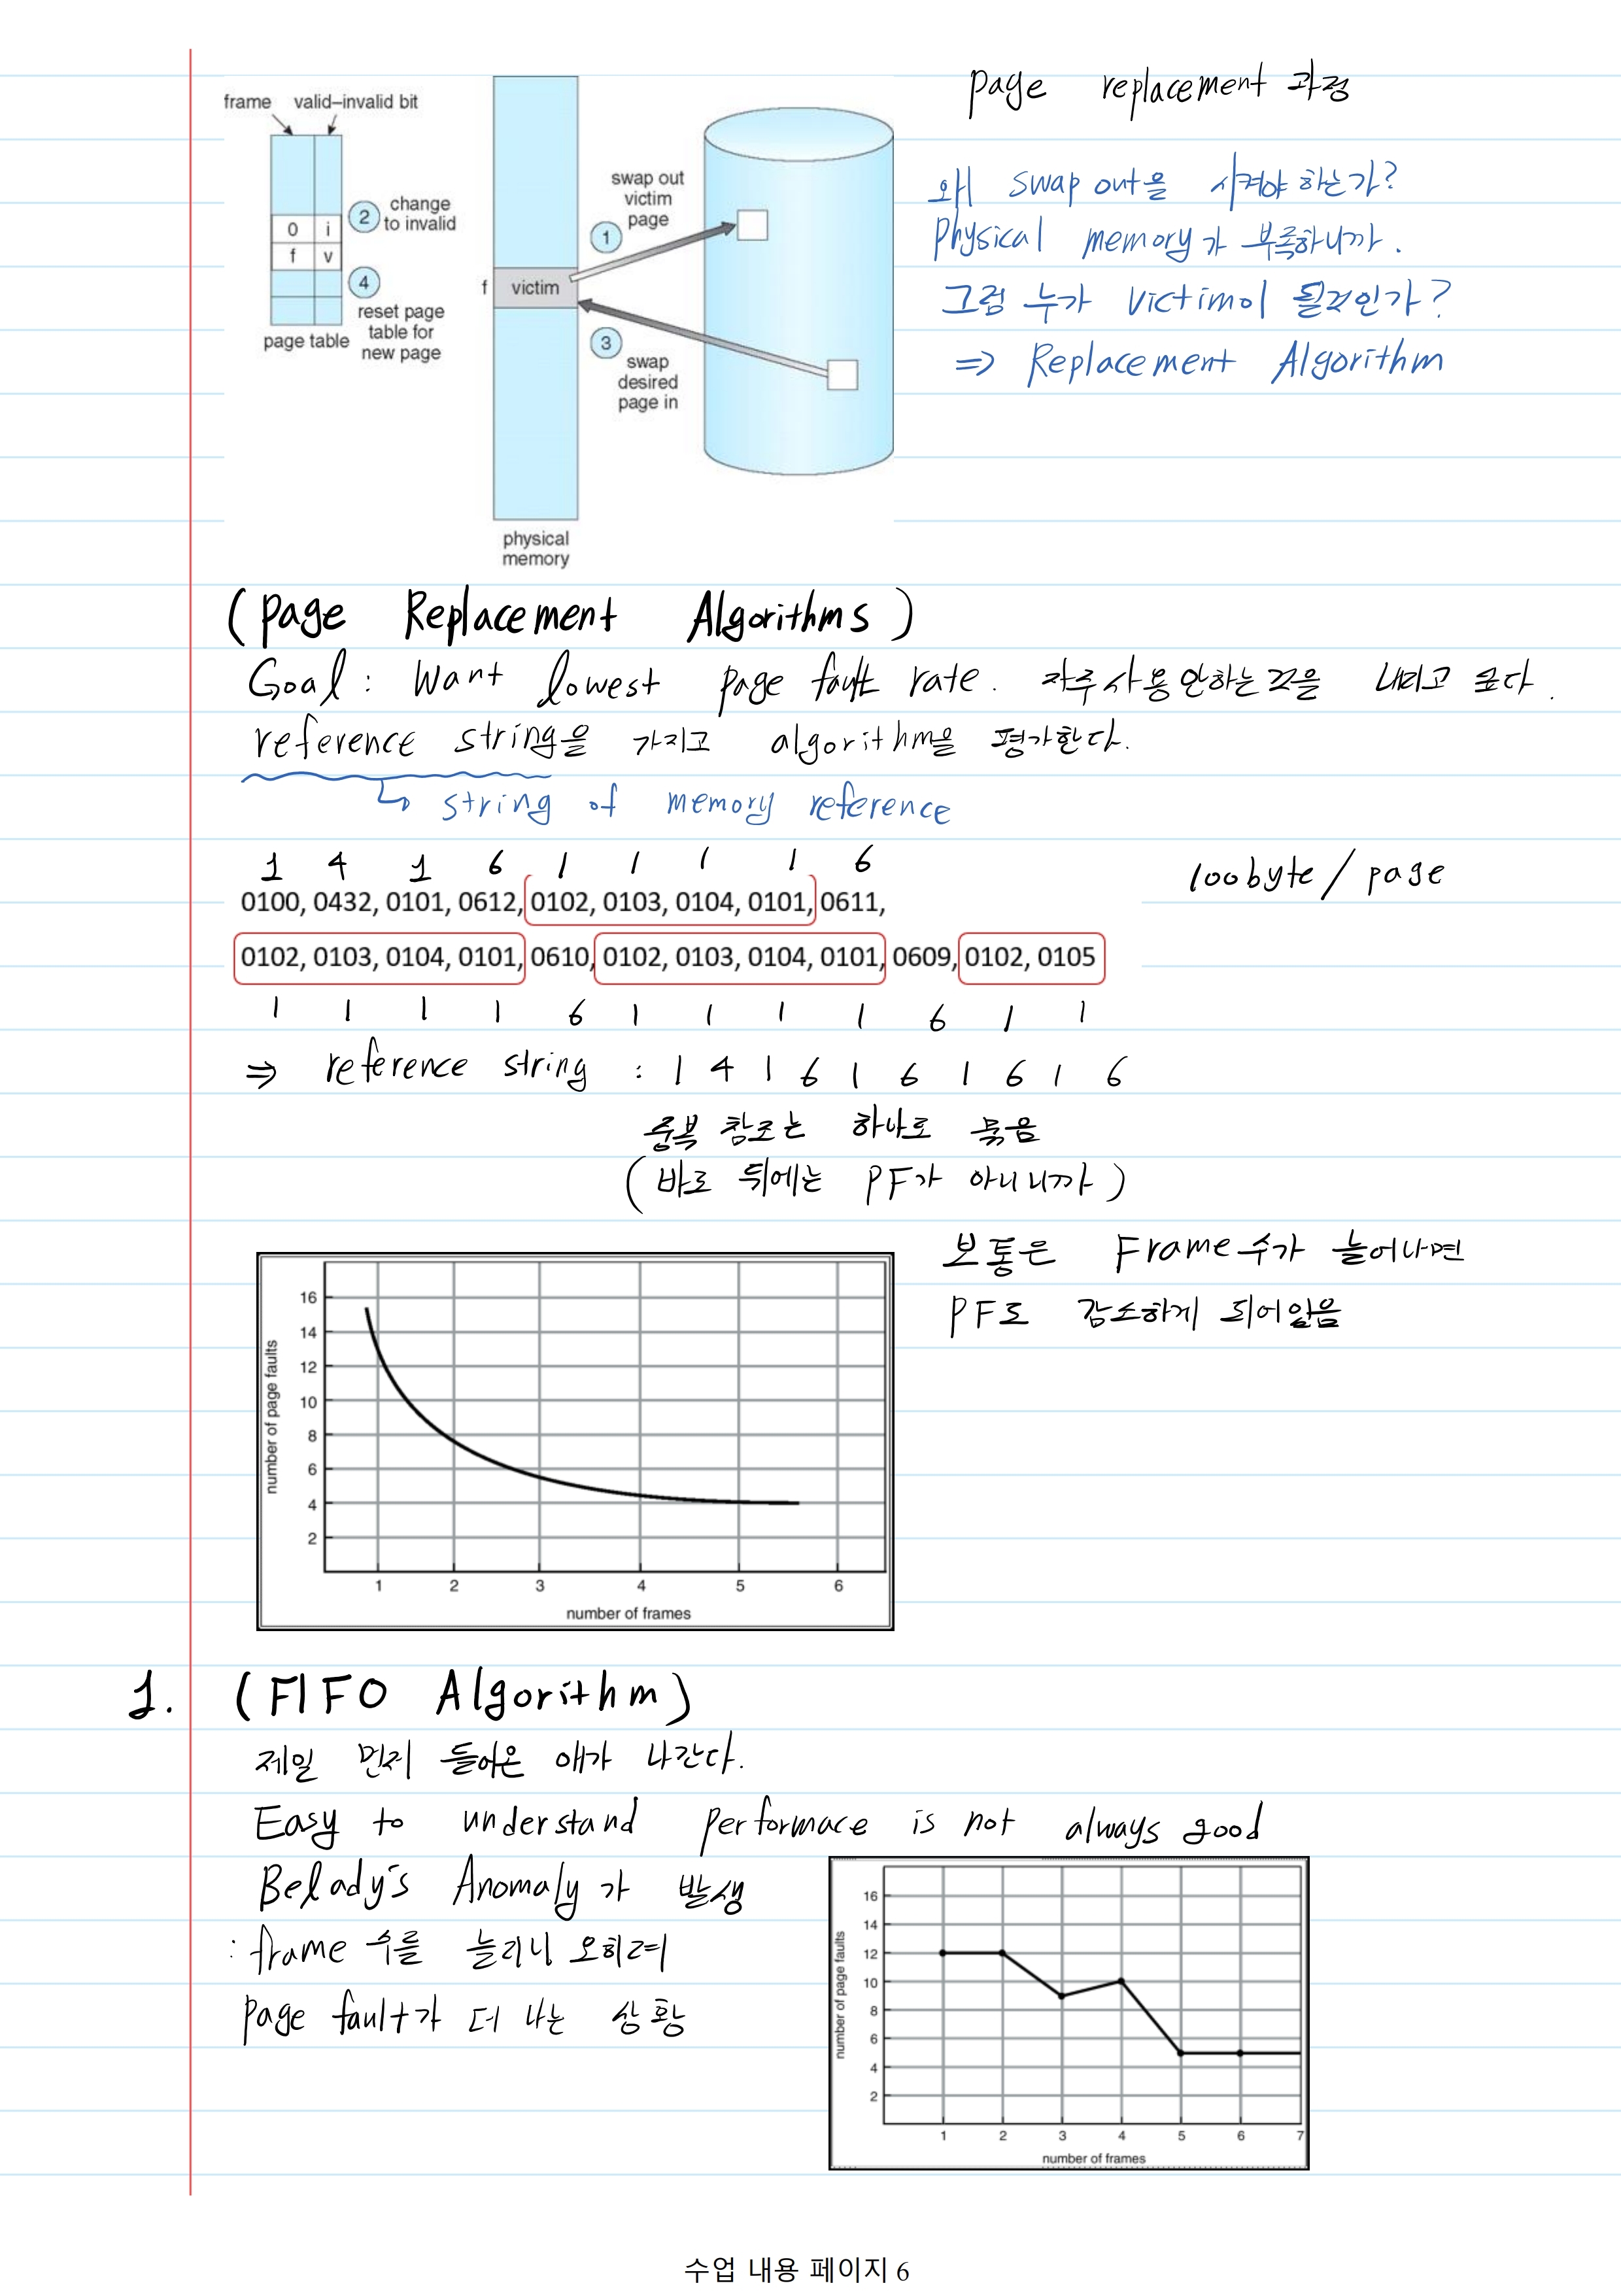 page replacement 과정
frame valid–invalid bit
swap out
victim
page
change
to invalid
2
1
0 i
f v
4
reset page
table for
new page
page table
f victim
3
swap
desired
page in
physical
memory
왜 swap out을 시켜야 하는가?
Physical memory가 부족하니까.
그럼 누가 victim이 될것인가?
⇒ Replacement Algorithm
(Page Replacement Algorithms)
Goal: Want lowest page fault rate. 자주 사용 안하는 것을 내리고 싶다.
reference string을 가지고 algorithm을 평가한다.
↳ string of memory reference
1 4 1 6 1 1 1 1 6
0100, 0432, 0101, 0612, 0102, 0103, 0104, 0101, 0611,
100byte/page
0102, 0103, 0104, 0101, 0610, 0102, 0103, 0104, 0101, 0609, 0102, 0105
1 1 1 1 6 1 1 1 1 6 1 1
⇒ reference string : 1 4 1 6 1 6 1 6 1 6
중복 참조는 하나로 묶음
(바로 뒤에는 PF가 아니니까)
보통은 Frame수가 늘어나면
PF도 감소하게 되어있음
number of page faults
16
14
12
10
8
6
4
2
1 2 3 4 5 6
number of frames
1. (FIFO Algorithm)
제일 먼저 들어온 애가 나간다.
Easy to understand performace is not always good
Belady's Anomaly가 발생
: frame 수를 늘리니 오히려
page fault가 더 나는 상황
number of page faults
16
14
12
10
8
6
4
2
1 2 3 4 5 6 7
number of frames
수업 내용 페이지 6